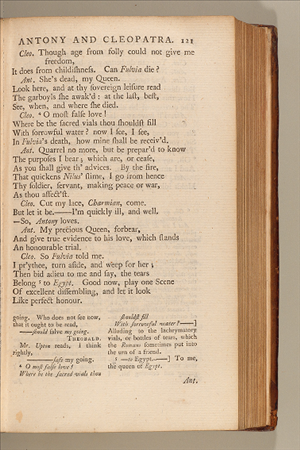 ANTONY AND CLEOPATRA. 121
Cleo. Though age from folly could not give me
freedom,
It does from childishness. Can Fulvia die?
Ant. She's dead, my Queen.
Look here, and at thy sovereign leisure read
The garboyls she awak'd: at the last, best,
See, when, and where she died.
Cleo. ⁴ O most false love!
Where be the sacred vials thou shouldst fill
With sorrowful water? now I see, I see,
In Fulvia's death, how mine shall be receiv'd.
Ant. Quarrel no more, but be prepar'd to know
The purposes I bear; which are, or cease,
As you shall give th' advices. By the fire,
That quickens Nilus' slime, I go from hence
Thy soldier, servant, making peace or war,
As thou affect'st.
Cleo. Cut my lace, Charmian, come.
But let it be.——I'm quickly ill, and well.
—So, Antony loves.
Ant. My precious Queen, forbear,
And give true evidence to his love, which stands
An honourable trial.
Cleo. So Fulvia told me.
I pr'ythee, turn aside, and weep for her;
Then bid adieu to me and say, the tears
Belong ⁵ to Egypt. Good now, play one Scene
Of excellent dissembling, and let it look
Like perfect honour.
going. Who does not see now,
that it ought to be read,
——should salve my going.
THEOBALD.
Mr. Upton reads, I think
rightly,
——safe my going.
⁴ O most false love!
Where be the sacred vials thou
shouldst fill
With sorrowful water?——]
Alluding to the lachrymatory
vials, or bottles of tears, which
the Romans sometimes put into
the urn of a friend.
⁵ —to Egypt.——] To me,
the queen of Egypt.
Ant.